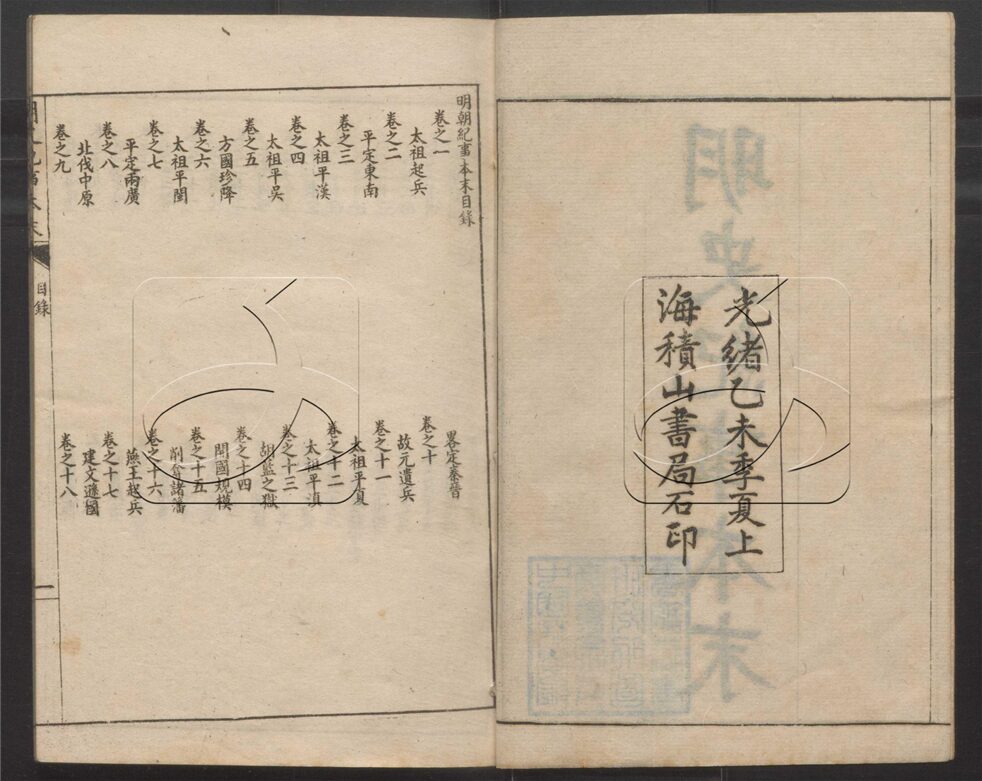 光緒乙未季夏上
海積山書局石印
明朝紀事本末目錄
卷之一
太祖起兵
卷之二
平定東南
卷之三
太祖平漢
卷之四
太祖平吳
卷之五
方國珍降
卷之六
太祖平閩
卷之七
平定兩廣
卷之八
北伐中原
卷之九
畧定秦晉
卷之十
故元遺兵
卷之十一
太祖平夏
卷之十二
太祖平滇
卷之十三
胡藍之獄
卷之十四
開國規模
卷之十五
削奪諸藩
卷之十六
燕王起兵
卷之十七
建文遜國
卷之十八
目錄
一